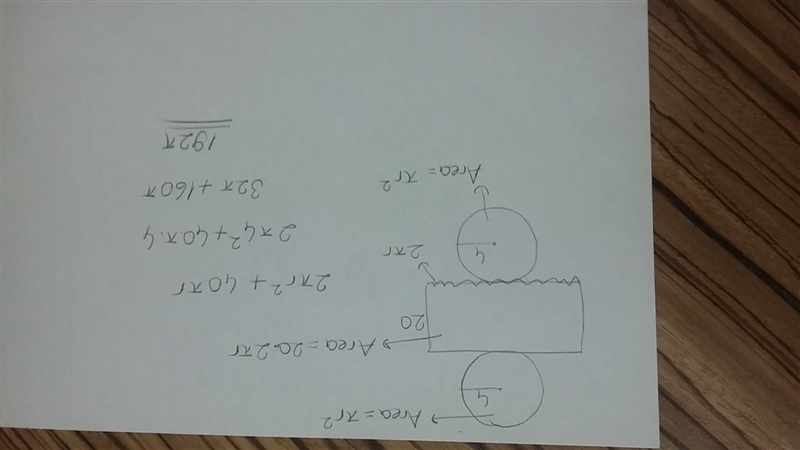 Area=πr²
4
Area=20·2πr
20
2πr
4
Area=πr²
2πr²+40πr
2π4²+40π·4
32π+160π
192π